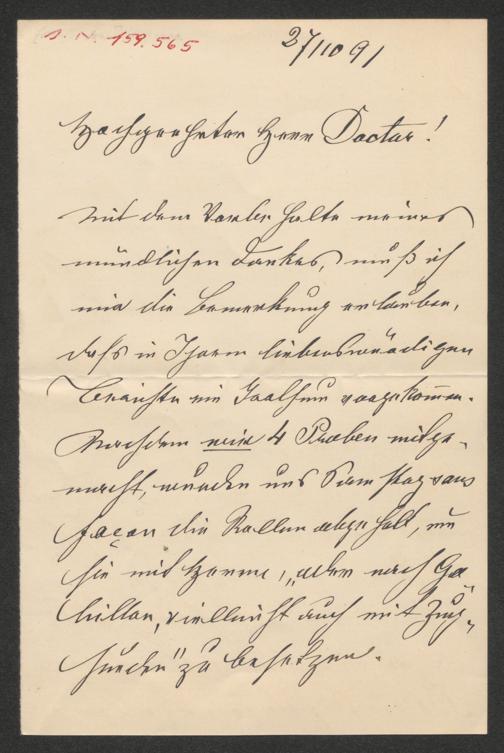 J. N. 159.565
27/10 91
Hochgeehrter Herr Doctor!
Mit dem Vorbehalte meines
mündlichen Dankes, muß ich
mir die Bemerkung erlauben,
daß in Ihrem liebenswürdigen
Berichte ein Irrthum vorgekommen.
Nachdem wir 4 Proben mitge-
macht, wurden uns Samstag sans
façon die Rollen abgeholt, um
sie mit Herrn, "oder nach
vielleicht auch mit Zug-
hunden" zu besetzen.